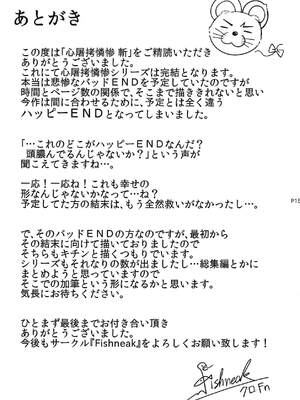 あとがき
この度は「心屠拷憐惨 斬」をご精読いただき
ありがとうございました。
これにて心屠拷憐惨シリーズは完結となります。
本当は悲惨なバッドENDを予定していたのですが
時間とページ数の関係で、そこまで描ききれないと思い
今作は間に合わせるために、予定とは全く違う
ハッピーENDとなってしまいました。
「…これのどこがハッピーENDなんだ？
頭膿んでるんじゃないか？」という声が
聞こえてきますね…。
一応！一応ね！これも幸せの
形なんじゃないかなって…ね？
予定してた方の結末は、もう全然救いがなかったし…。
で、そのバッドENDの方なのですが、最初から
その結末に向けて描いておりましたので
そちらもキチンと描くつもりでいます。
シリーズもそれなりの数が出ましたし…総集編とかに
まとめようと思っていますので
そこでの加筆という形になるかと思います。
気長にお待ちください。
ひとまず最後までお付き合い頂き
ありがとうございました。
今後もサークル『Fishneak』をよろしくお願い致します！
P15
Fishneak
クロFn